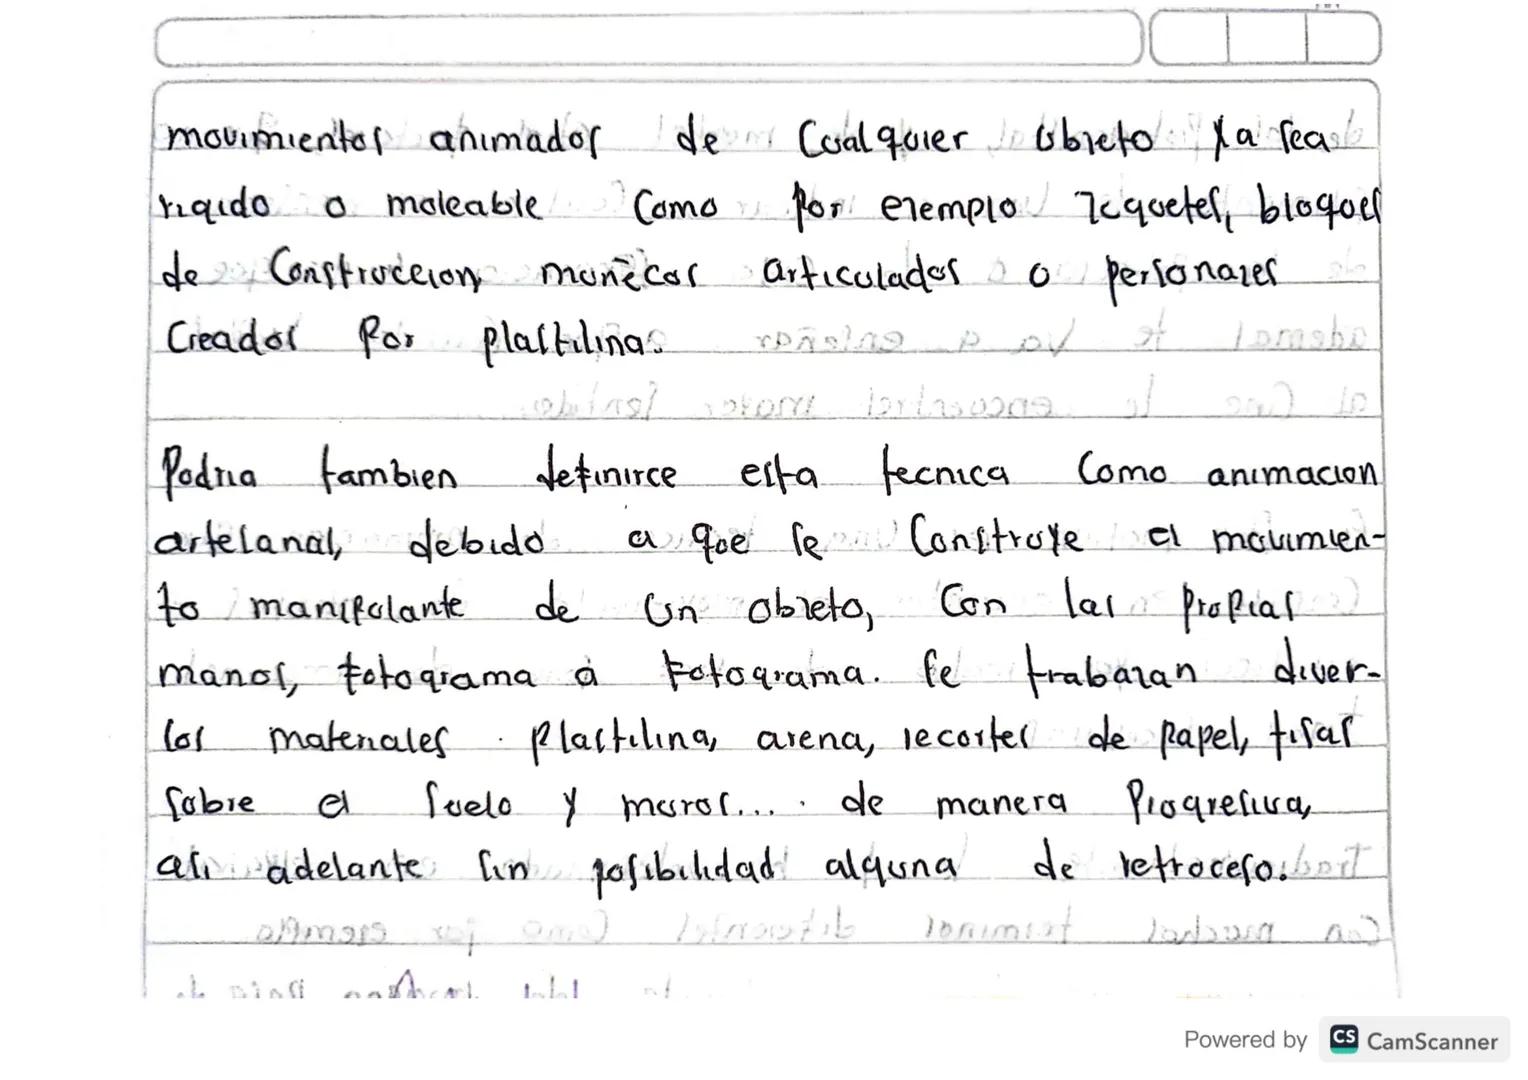 movimientos animados de Cualquier Objeto Ya sea
rigido o moleable Como por ejemplo Juguetes, bloques
de Construccion, muñecos articulados o personajes
Creados Por plastilina.
Podria tambien definirce esta tecnica Como animacion
artesanal, debido a que se Construye el movimien-
to manipulante de Un objeto, Con las Propias
manos, fotograma a fotograma. Se trabajan diver-
sos materiales. plastilina, arena, recortes de papel, tisas
Sobre el Suelo y muros.... de manera Progresiva,
asi adelante Sin posibilidad alguna de retroceso.
Powered by CS CamScanner